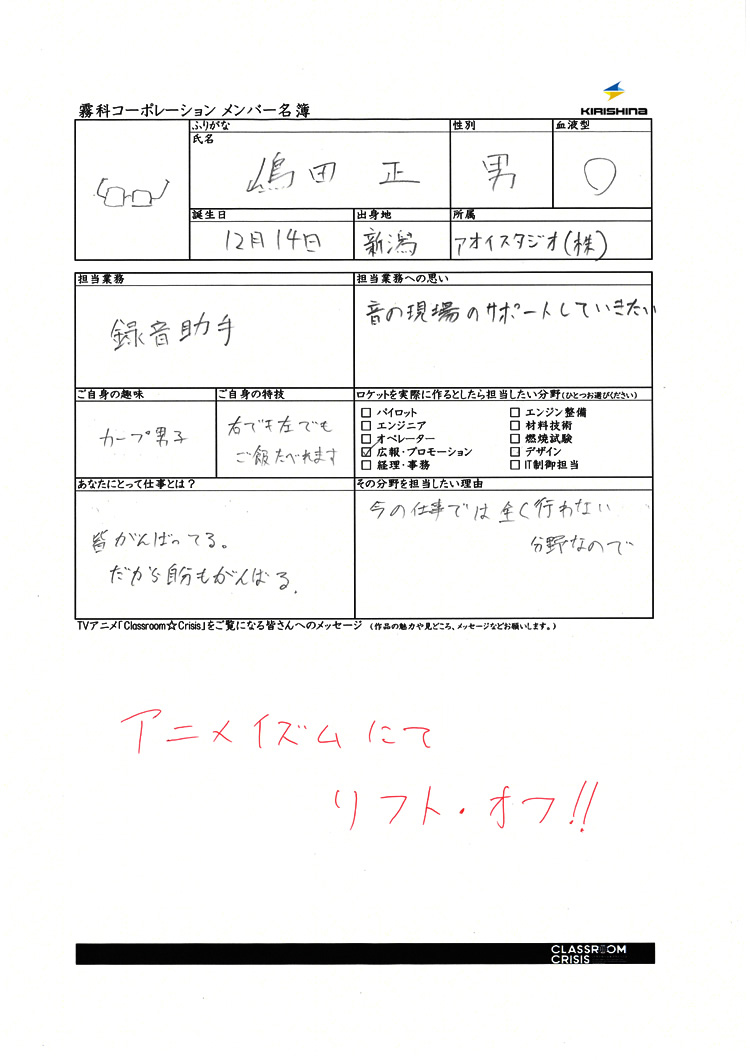 霧科コーポレーション メンバー名簿
KIRISHINA
ふりがな
氏名
嶋田 正
性別
男
血液型
O
誕生日
12月14日
出身地
新潟
所属
アオイスタジオ(株)
担当業務
録音助手
担当業務への思い
音の現場のサポートしていきたい
ご自身の趣味
カープ男子
ご自身の特技
右でも左でも
ご飯たべれます
ロケットを実際に作るとしたら担当したい分野(ひとつお選びください)
□ パイロット
□ エンジニア
□ オペレーター
☑ 広報・プロモーション
□ 経理・事務
□ エンジン整備
□ 材料技術
□ 燃焼試験
□ デザイン
□ IT制御担当
あなたにとって仕事とは？
皆がんばってる。
だから自分もがんばる。
その分野を担当したい理由
今の仕事では全く行わない
分野なので
TVアニメ「Classroom☆Crisis」をご覧になる皆さんへのメッセージ (作品の魅力や見どころ、メッセージなどお願いします。)
アニメイズムにて
リフト・オフ!!
CLASSROOM
CRISIS